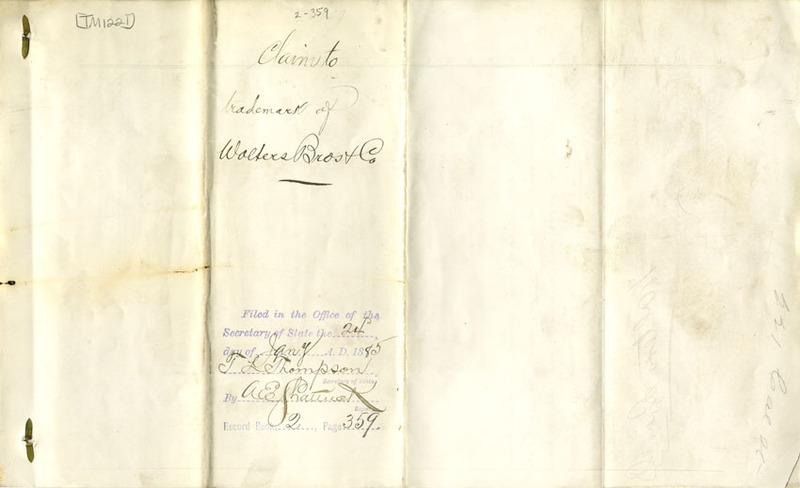 [TM1221]
2-359
Claim to
trademark of
Wolters Bros & Co
Filed in the Office of the
Secretary of State the 24
day of Jany A.D. 1885
T L Thompson
Secretary of State
By A E Shattuck
Record Book 2, Page 359